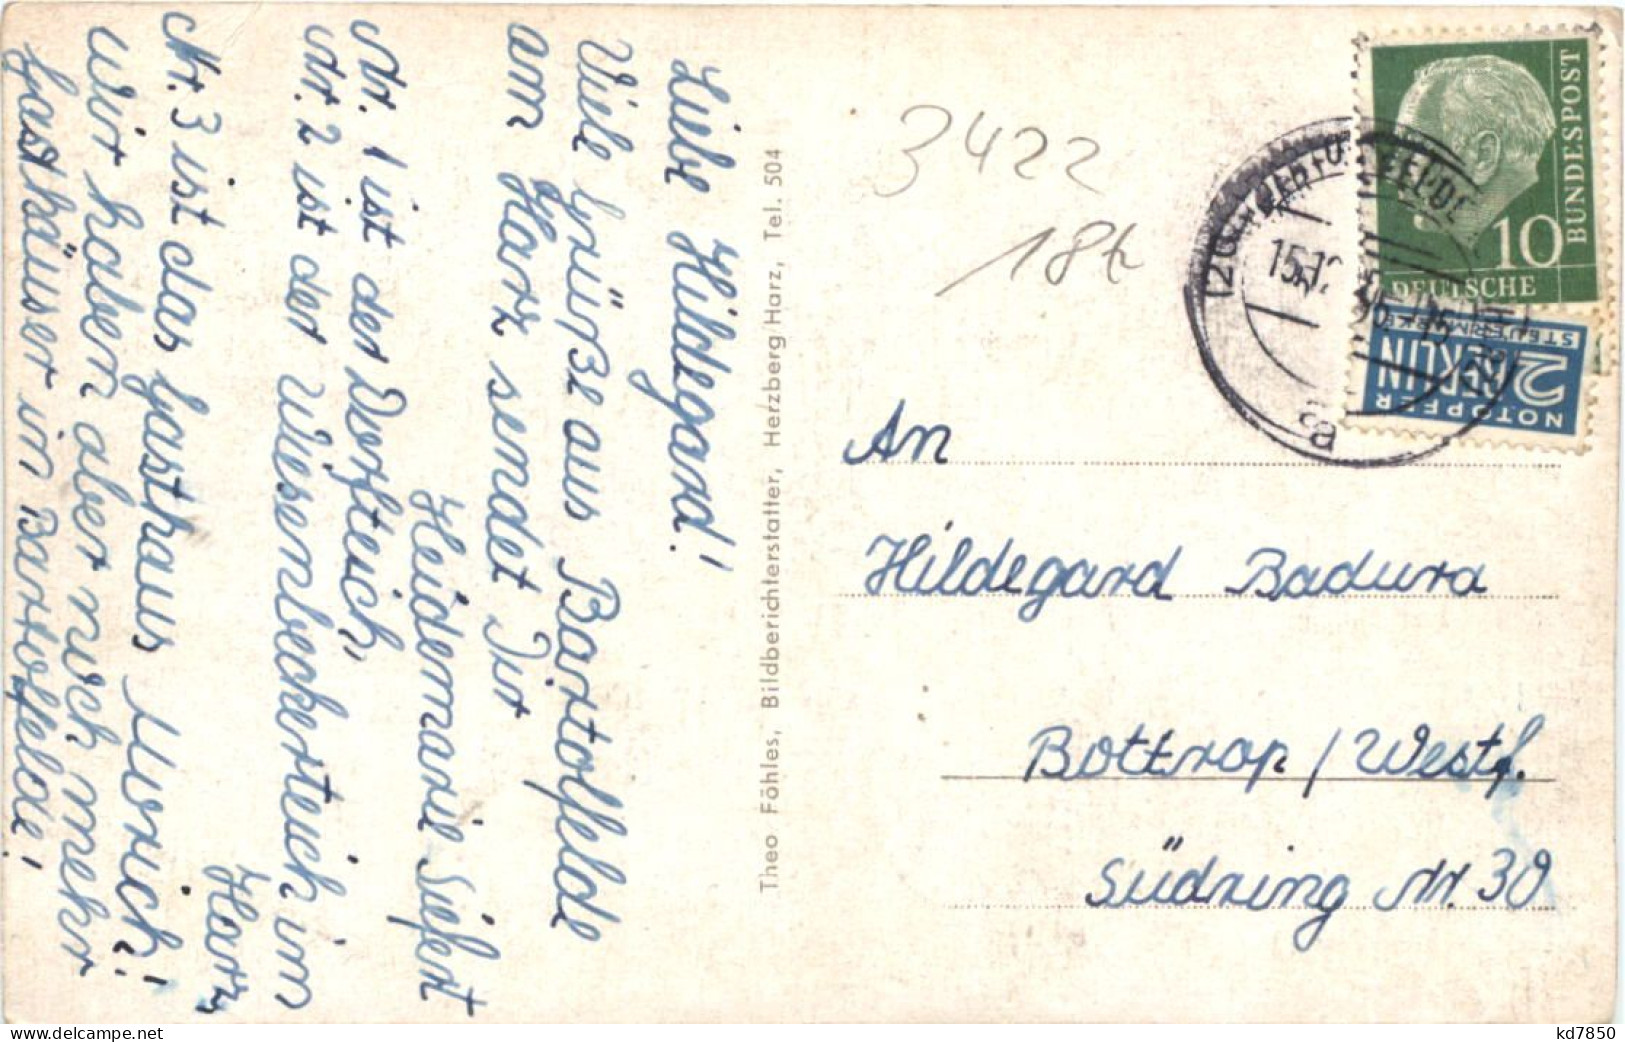 Liebe Hildegard!
Viele Grüße aus Bartolfelde
am Harz sendet Dir
Heidemarie Siefert
Nr. 1 ist der Dorfteich,
Nr. 2 ist der Wiesenbeckerteich im
Harz,
Nr. 3 ist das Gasthaus Morich!
Wir haben aber nuch mehr
Gasthäuser in Bartolfelde!
Theo Föhles, Bildberichterstatter, Herzberg/Harz, Tel. 504
3422
18t
DEUTSCHE
BUNDESPOST
10
2
NOTOPFER
BERLIN
STEUERMARKE
a
An
Hildegard Badura
Bottrop / Westf.
Südring Nr. 30
delcampe.net
kd7850